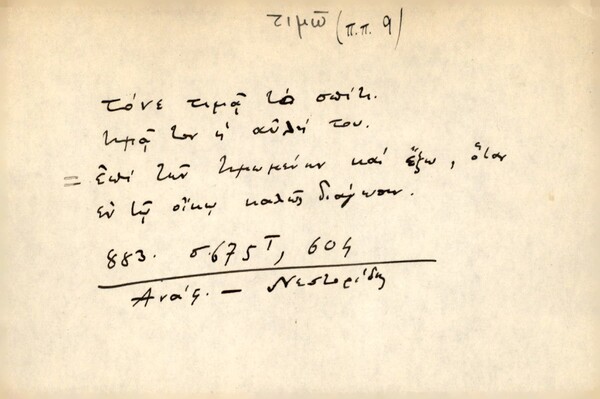 τιμῶ (π.π. 9)
τόνε τιμᾷ τὸ σπίτι.
τιμᾷ τον ἡ αὐλή του.
= ἐπὶ τῶν τιμωμένων καὶ ἔξω, ὅταν
ἐν τῷ οἴκῳ καλῶς διάγωσιν.
883. σ. 675 Γ, 604
Ανάφ. – Νεστορίδης